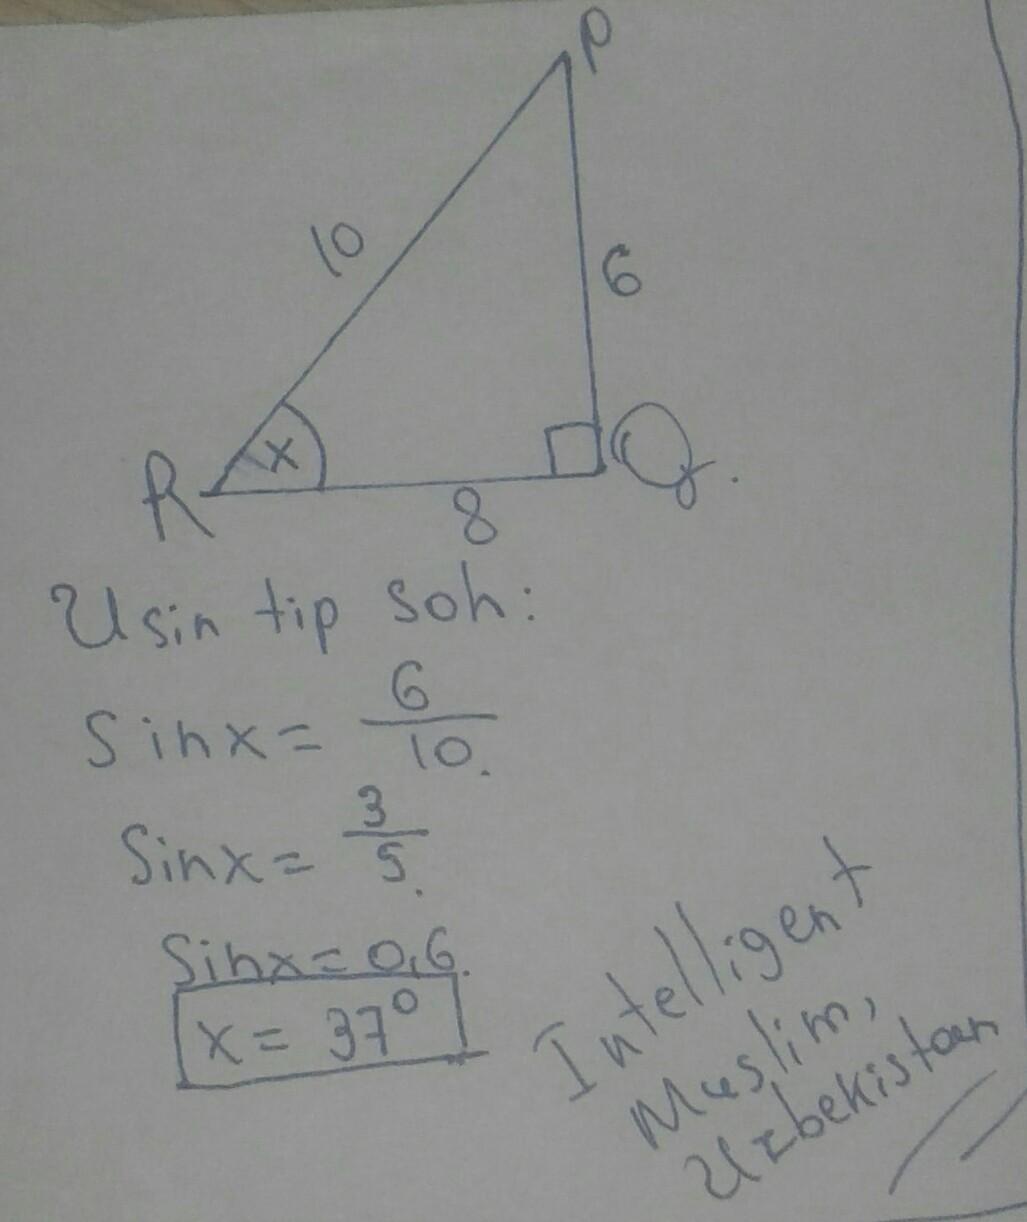 P
10
6
x
R
Q.
8
Usin tip soh:
Sinx = 6/10.
Sinx = 3/5.
Sinx = 0,6.
x = 37°
Intelligent
Muslim,
Uzbekistan